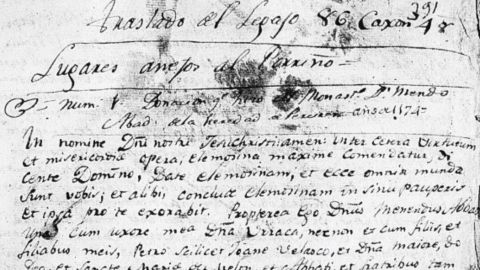 391
Traslado del Legajo 86 Caxon 4
Lugares anejos al Porriño =
Num. 1. Donacion q. hizo al Monast. D. Mendo
Abad. de la heredad de años de 1174 =
In nomine Dñi nostri Jesuchristi amen: inter cetera virtutum
et misericordie opera, elemosina maxime comendatur, di
cente Domino, Date elemosinam, et ecce omnia munda
sunt vobis; et alibi, conclude elemosinam in sinu pauperis
et ipsa pro te exorabit. Propterea Ego Dñus Menendus, Abbas
una cum uxore mea Dña Uraca, necnon et cum filiis, et
filiabus meis, Petro scilicet Joane Velasco, et Dña maiore, do
Deo, et Sancte Marie de Melon et Abbati, et fratribus tam